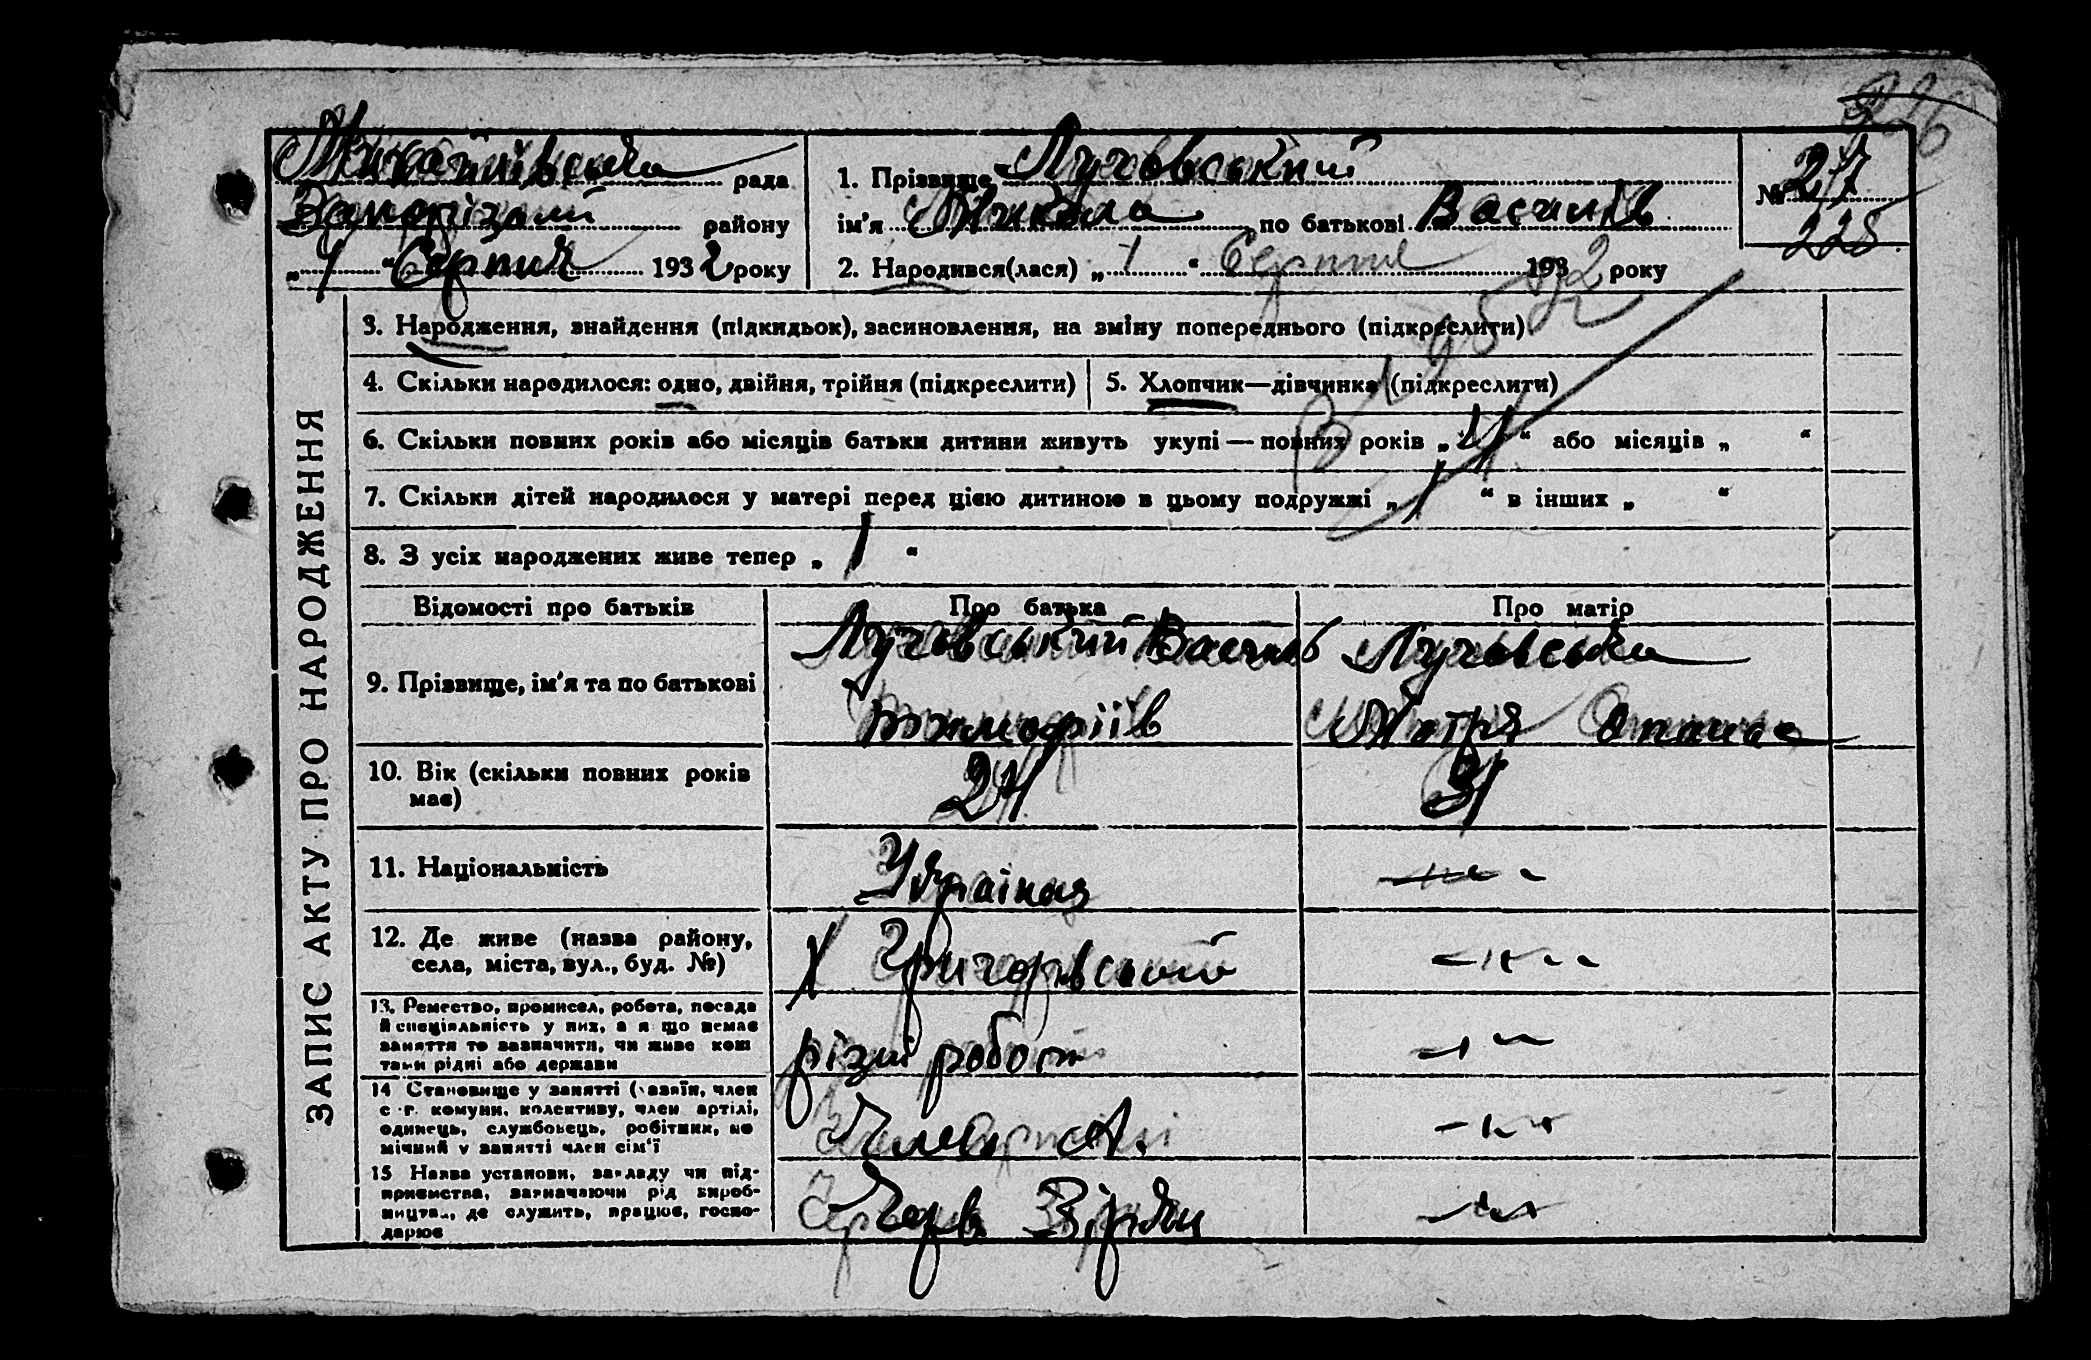 Михайлівська рада
Запорізької району
„ 4 “ Серпня 1932 року
1. Прізвище Луговський
ім'я Микола по батькові Василів
2. Народився(лася) „ 1 “ Серпня 1932 року
№ 27
228
3. Народження, знайдення (підкидьок), засиновлення, на зміну попереднього (підкреслити)
4. Скільки народилося: одно, двійня, трійня (підкреслити)
5. Хлопчик—дівчинка (підкреслити)
6. Скільки повних років або місяців батьки дитини живуть укупі — повних років „ 4 “ або місяців „ “
7. Скільки дітей народилося у матері перед цією дитиною в цьому подружжі „ 1 “ в інших „ “
8. З усіх народжених живе тепер „ 1 “
ЗАПИС АКТУ ПРО НАРОДЖЕННЯ
Відомості про батьків
Про батька
Про матір
9. Прізвище, ім'я та по батькові
Луговський Василь
Тимофіїв
Луговська
Мотря Опанас
10. Вік (скільки повних років
має)
24
11. Національність
Україная
12. Де живе (назва району,
села, міста, вул., буд. №)
х Григорівський
13. Ремество, промисел, робота, посада
й спеціяльність у них, а якщо немає
заняття то зазначити, чи живе кош
тами рідні або держави
різні работи
14 Становище у занятті (хазяїн, член
с.-г. комуни, колективу, член артілі,
одинець, службовець, робітник, по
мічний у занятті член сім'ї
Член А.
15 Назва установи, закладу чи під-
приємства, зазначаючи рід вироб-
ництва, де служить, працює, госпо-
дарює
Черв Зірки